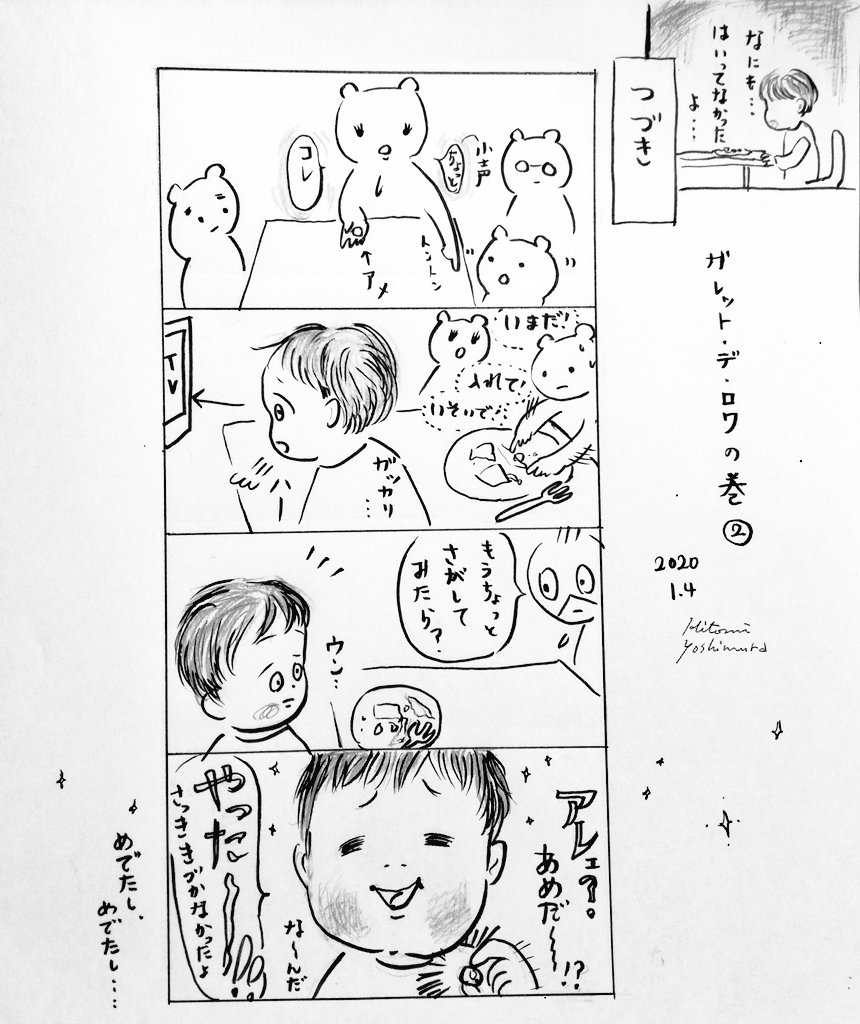 なにも…
はいってなかった
よ…
つづき
ガレット・デ・ロワの巻
②
2020
1.4
Hitomi
Yoshimura
小声
ちょっと
コレ
トントン
↑アメ
いまだ!
入れて!
いそいで!
TV
ガッカリ
…
もうちょっと
さがして
みたら?
ウン…
アレェ?。
あめだ〜〜!?
な〜んだ
やったー〜!!
さっききづかなかったよ
めでたし、
めでたし…